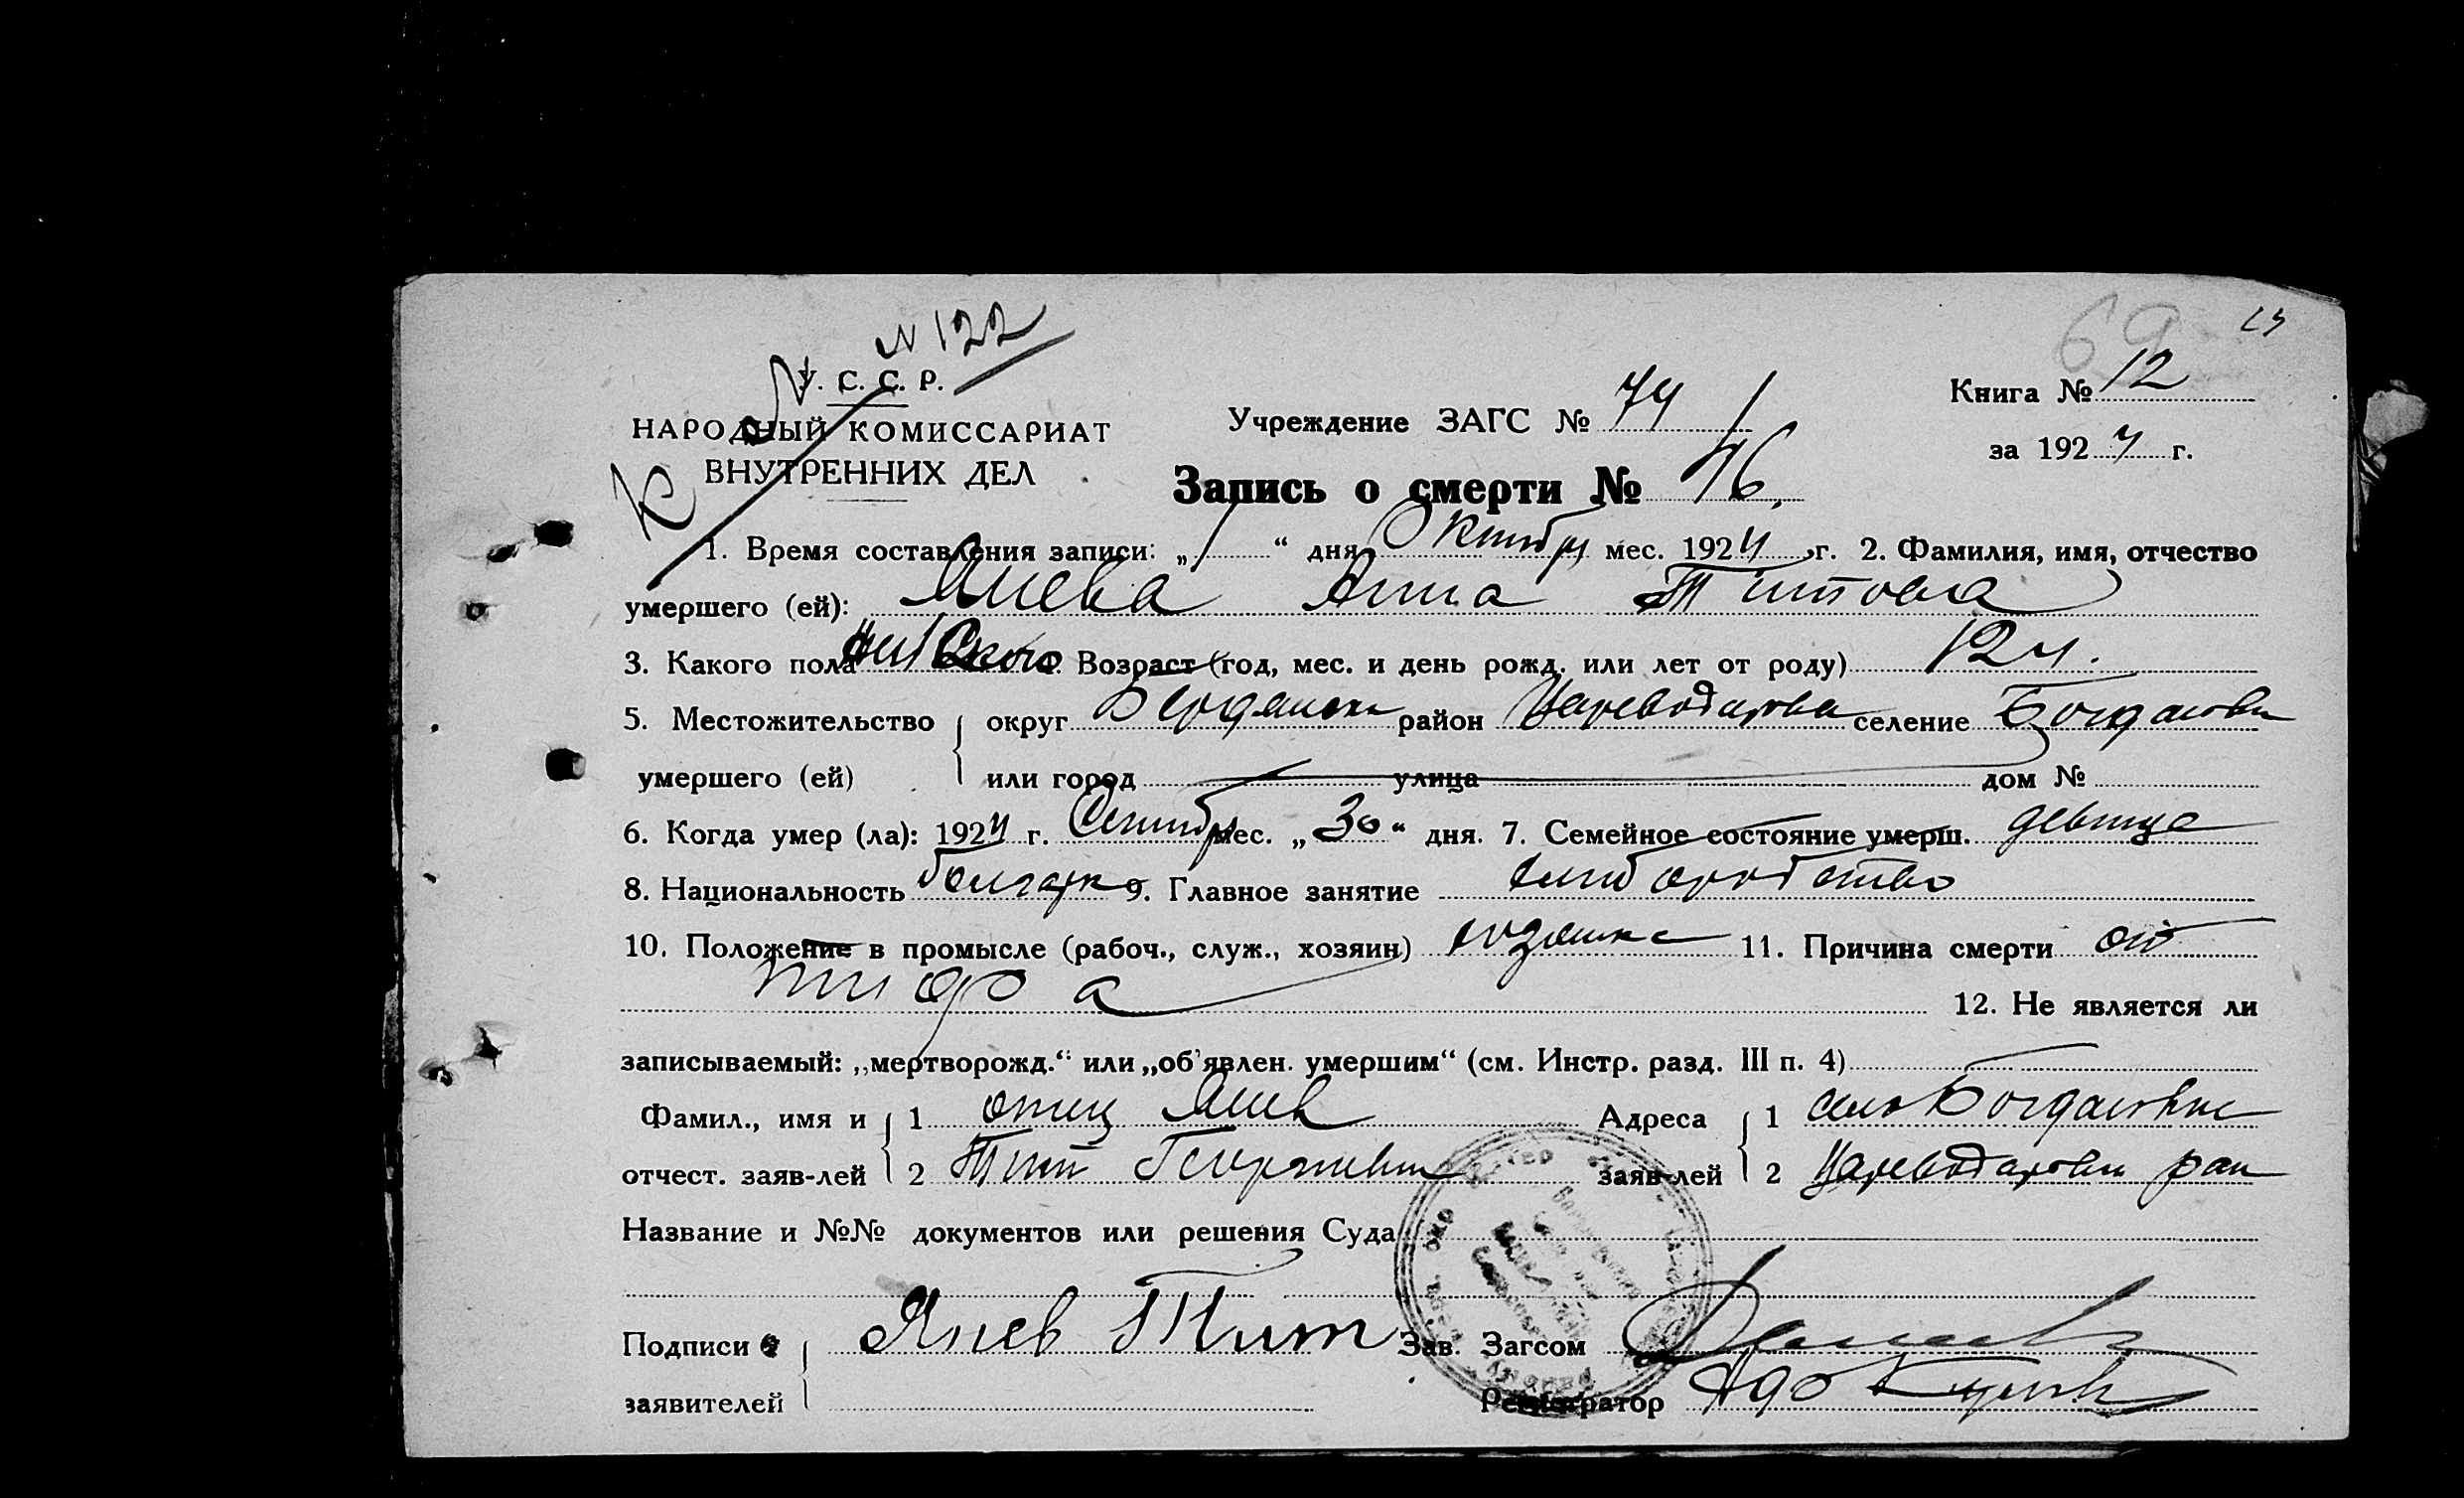 N 122
69
У. С. С. Р.
Книга № 12
НАРОДНЫЙ КОМИССАРИАТ
Учреждение ЗАГС № 74
за 1924 г.
ВНУТРЕННИХ ДЕЛ
Запись о смерти № 46.
1. Время составления записи: „1“ дня Октября мес. 1924 г. 2. Фамилия, имя, отчество
умершего (ей): Янева Анна Титовна
3. Какого пола 4. Возраст (год, мес. и день рожд. или лет от роду) 12 л.
5. Местожительство округ Бердянск район Цареводарова селение Богдановка
умершего (ей) или город улица дом №
6. Когда умер (ла): 1924 г. Сентябр мес. „30“ дня. 7. Семейное состояние умерш. девица
8. Национальность болгарк 9. Главное занятие хлеборобство
10. Положение в промысле (рабоч., служ., хозяин) 11. Причина смерти от
тифа 12. Не является ли
записываемый: „мертворожд.“ или „об'явлен. умершим“ (см. Инстр. разд. III п. 4)
Фамил., имя и 1 отец Янев Адреса 1 село Богдановка
отчест. заяв-лей 2 Тит Георгиевич заяв-лей 2 Цареводаровск рай
Название и №№ документов или решения Суда
Подписи Янев Тит Зав. Загсом
заявителей Регистратор